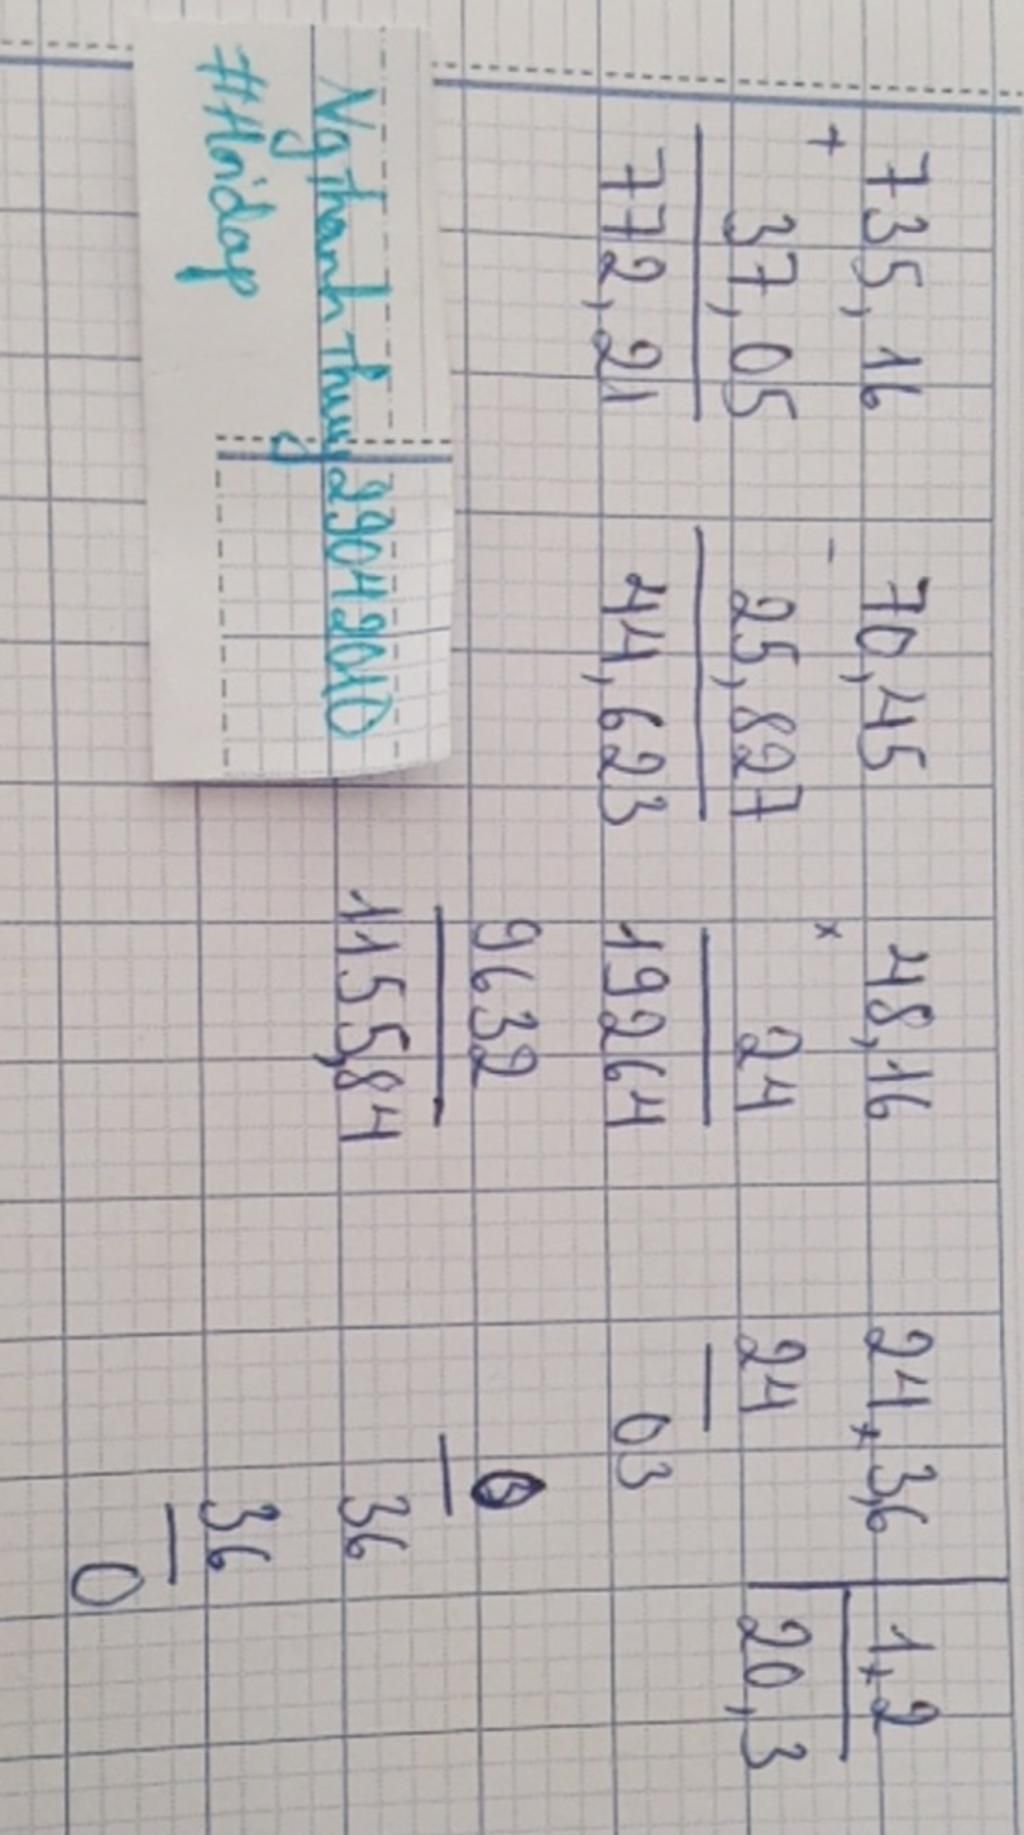 735,16
+
37,05
772,21
70,45
-
25,827
44,623
48,16
x
24
19264
9632
1155,84
24,3,6 | 1,2
24 20,3
03
0
36
36
0
Ng Thanh Thuy29042010
#Hoidap